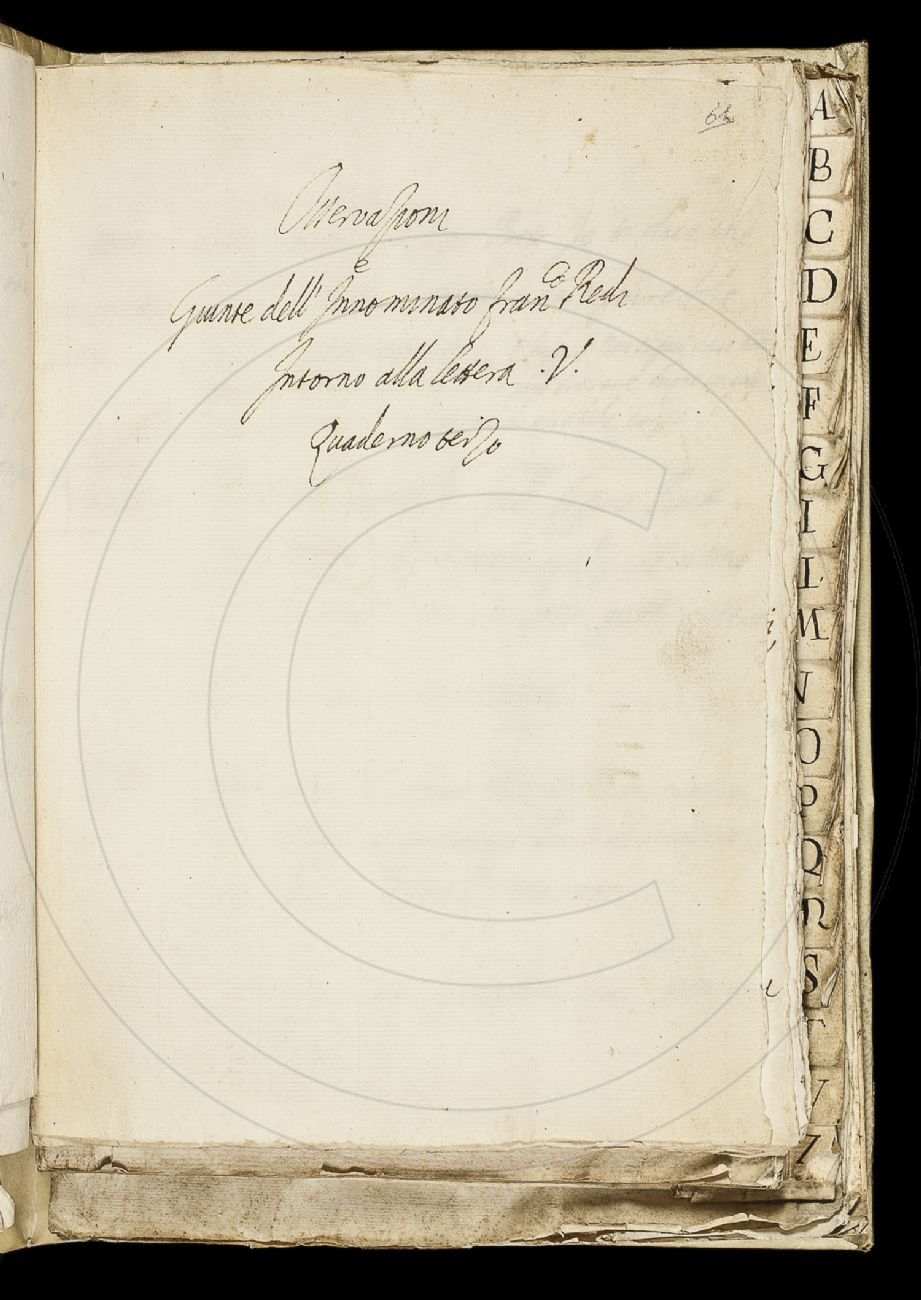 Osservazioni
Quinte dell' Innominato Fran.co Redi
Intorno alla lettera .V.
Quaderno terzo
A
B
C
D
E
F
G
I
L
M
N
O
P
Q
R
S
T
V
Z